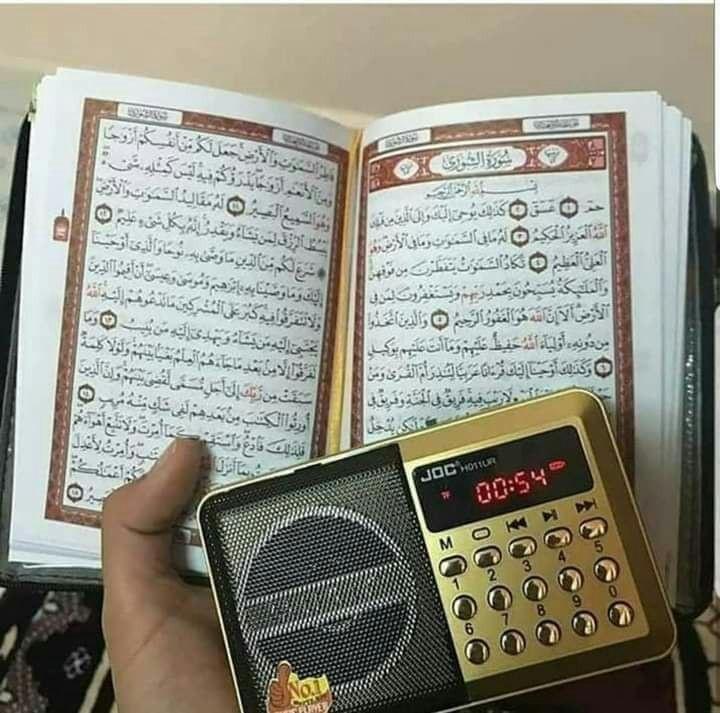 سُورَةُ الشُّورَىٰ
بِسْمِ اللَّهِ الرَّحْمَٰنِ الرَّحِيمِ
حمٓ ١ عٓسٓقٓ ٢ كَذَٰلِكَ يُوحِىٓ إِلَيْكَ وَإِلَى الَّذِينَ مِن قَبْلِكَ
اللَّهُ الْعَزِيزُ الْحَكِيمُ ٣ لَهُۥ مَا فِى السَّمَٰوَٰتِ وَمَا فِى الْأَرْضِ وَهُوَ
الْعَلِىُّ الْعَظِيمُ ٤ تَكَادُ السَّمَٰوَٰتُ يَتَفَطَّرْنَ مِن فَوْقِهِنَّ
وَالْمَلَٰٓئِكَةُ يُسَبِّحُونَ بِحَمْدِ رَبِّهِمْ وَيَسْتَغْفِرُونَ لِمَن فِى
الْأَرْضِ أَلَآ إِنَّ اللَّهَ هُوَ الْغَفُورُ الرَّحِيمُ ٥ وَالَّذِينَ اتَّخَذُوا
مِن دُونِهِۦٓ أَوْلِيَآءَ اللَّهُ حَفِيظٌ عَلَيْهِمْ وَمَآ أَنتَ عَلَيْهِم بِوَكِيلٍ ٦
وَكَذَٰلِكَ أَوْحَيْنَآ إِلَيْكَ قُرْءَانًا عَرَبِيًّا لِّتُنذِرَ أُمَّ الْقُرَىٰ وَمَنْ
لَا رَيْبَ فِيهِ فَرِيقٌ فِى الْجَنَّةِ وَفَرِيقٌ فِى
وَلَٰكِن يُدْخِلُ
سُورَةُ الشُّورَىٰ
فَاطِرُ السَّمَٰوَٰتِ وَالْأَرْضِ جَعَلَ لَكُم مِّنْ أَنفُسِكُمْ أَزْوَٰجًا
وَمِنَ الْأَنْعَٰمِ أَزْوَٰجًا يَذْرَؤُكُمْ فِيهِ لَيْسَ كَمِثْلِهِۦ شَىْءٌ
وَهُوَ السَّمِيعُ الْبَصِيرُ ١١ لَهُۥ مَقَالِيدُ السَّمَٰوَٰتِ وَالْأَرْضِ
يَبْسُطُ الرِّزْقَ لِمَن يَشَآءُ وَيَقْدِرُ إِنَّهُۥ بِكُلِّ شَىْءٍ عَلِيمٌ ١٢
شَرَعَ لَكُم مِّنَ الدِّينِ مَا وَصَّىٰ بِهِۦ نُوحًا وَالَّذِىٓ أَوْحَيْنَآ
إِلَيْكَ وَمَا وَصَّيْنَا بِهِۦٓ إِبْرَٰهِيمَ وَمُوسَىٰ وَعِيسَىٰٓ أَنْ أَقِيمُوا الدِّينَ
وَلَا تَتَفَرَّقُوا فِيهِ كَبُرَ عَلَى الْمُشْرِكِينَ مَا تَدْعُوهُمْ إِلَيْهِ اللَّهُ
يَجْتَبِىٓ إِلَيْهِ مَن يَشَآءُ وَيَهْدِىٓ إِلَيْهِ مَن يُنِيبُ ١٣ وَمَا
تَفَرَّقُوٓا إِلَّا مِنۢ بَعْدِ مَا جَآءَهُمُ الْعِلْمُ بَغْيًۢا بَيْنَهُمْ وَلَوْلَا كَلِمَةٌ
سَبَقَتْ مِن رَّبِّكَ إِلَىٰٓ أَجَلٍ مُّسَمًّى لَّقُضِىَ بَيْنَهُمْ وَإِنَّ الَّذِينَ
أُورِثُوا الْكِتَٰبَ مِنۢ بَعْدِهِمْ لَفِى شَكٍّ مِّنْهُ مُرِيبٍ ١٤
فَلِذَٰلِكَ فَادْعُ وَاسْتَقِمْ أُمِرْتَ وَلَا تَتَّبِعْ أَهْوَآءَهُمْ
بِمَآ أَنزَلَ وَأُمِرْتُ لِأَعْدِلَ
أَعْمَٰلُكُمْ
JOC H011UR
TF 00:54
M
1 2 3 4 5
6 7 8 9 0
No.1
PLAYER